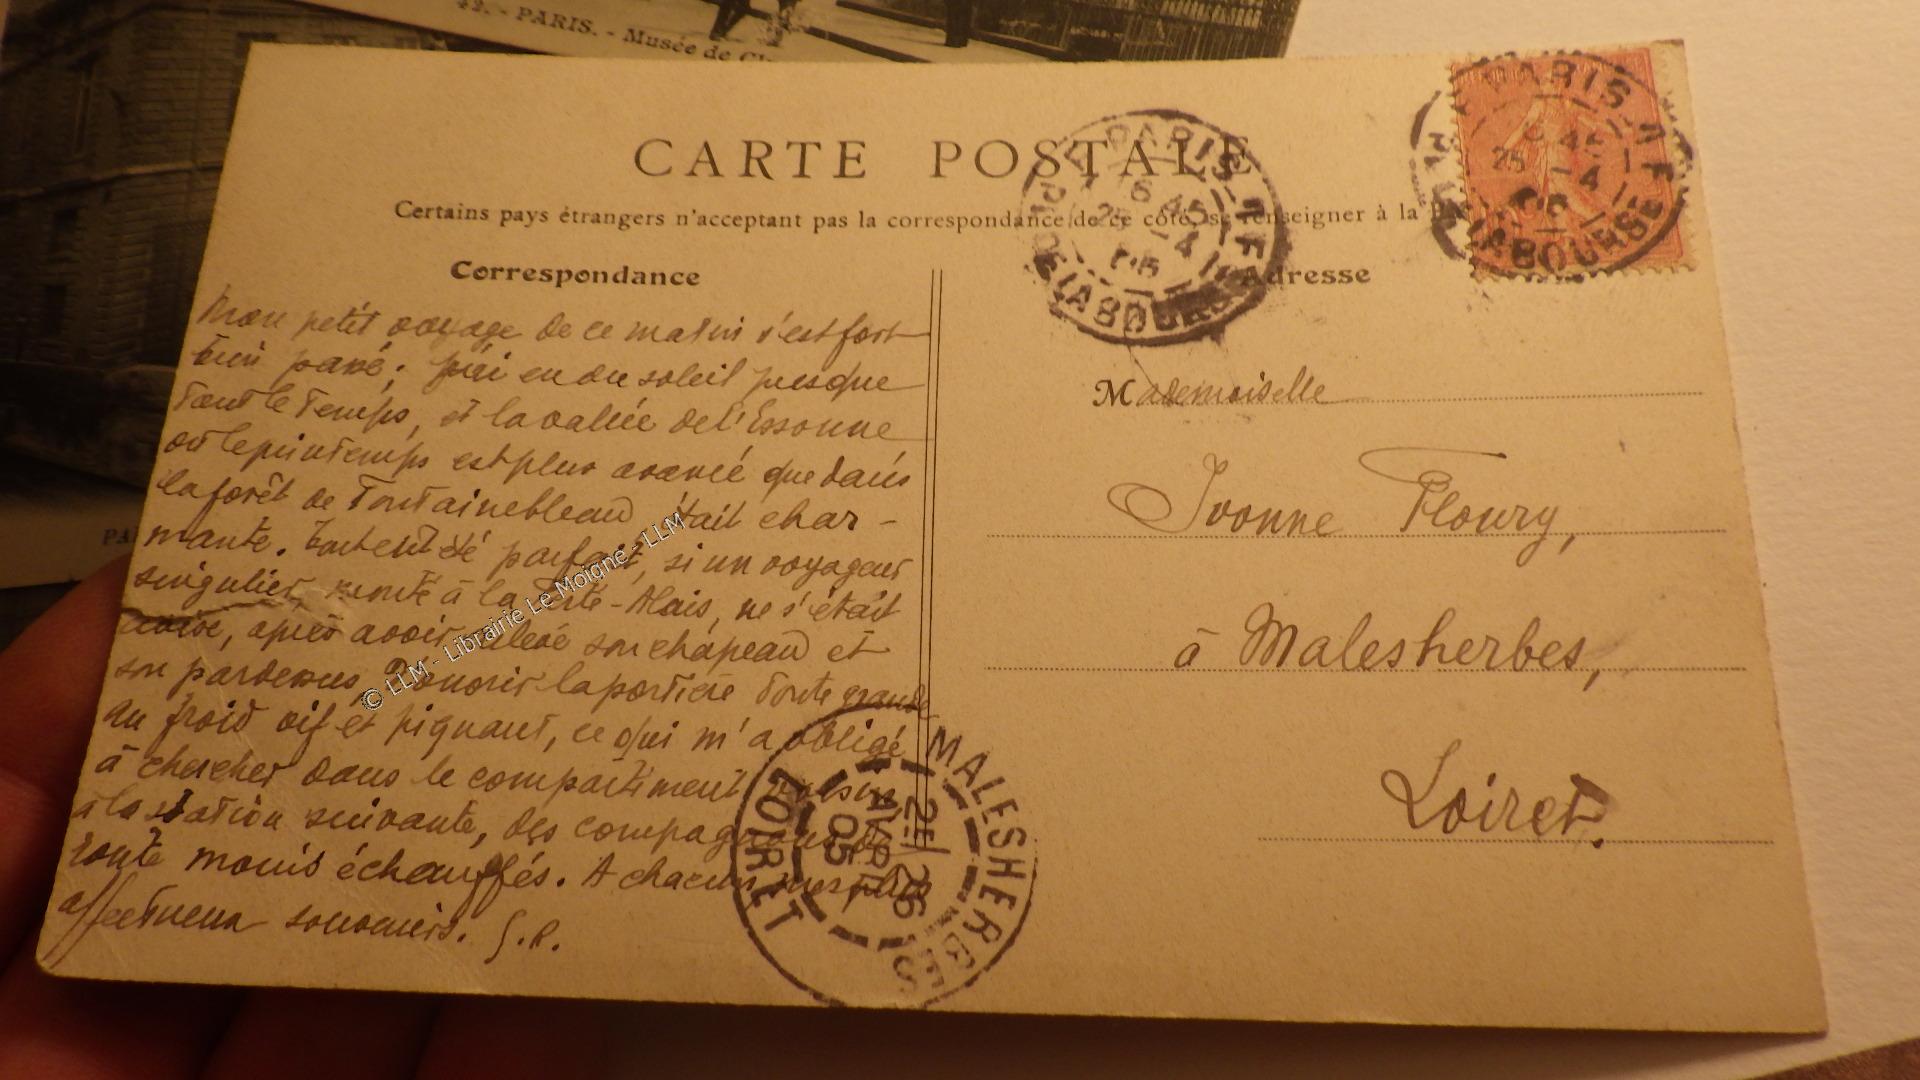 42. - PARIS. - Musée de Cl
PA
CARTE POSTALE
Certains pays étrangers n'acceptant pas la correspondance de ce côté, se renseigner à la
Correspondance
Adresse
Mon petit voyage de ce matin s'est fort
bien passé ; j'ai eu du soleil presque
tout le temps, et la vallée de l'Essonne
où le printemps est plus avancé que dans
la forêt de Fontainebleau était char-
mante. Tout eut été parfait, si un voyageur
singulier, monté à la Ferté-Alais, ne s'était
avisé, après avoir enlevé son chapeau et
son pardessus, d'ouvrir la portière toute grande
au froid vif et piquant, ce qui m'a obligé
à chercher dans le compartiment voisin
à la station suivante, des compagnons de
route moins échauffés. A chacun mes plus
affectueux souvenirs. S.P.
Mademoiselle
Yvonne Fleury,
à Malesherbes,
Loiret.
PARIS
R. DE LA BOURSE
6 45
25 - 4
05
PARIS
R. DE LA BOURSE
6 45
25 - 4
05
MALESHERBES
25 AVRIL 05
LOIRET
© LLM - Librairie Le Moigne - LLM